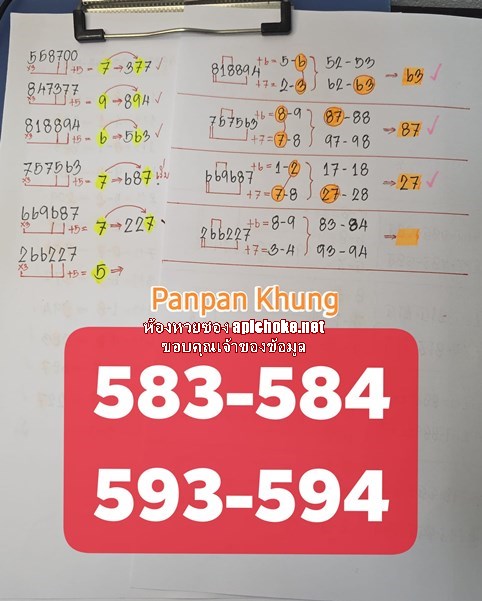 558700
x3 +5 = 7 → 377 ✓
847377
+5 = 9 → 894 ✓
818894
x3 +5 = 6 → 563 ✓
757563
x3 +5 = 7 → 687
669687
x3 +5 = 7 → 227
266227
x3 +5 = 5 ⇒
818894 +6 = 5-6 52-53
+7 = 2-3 62-63 ⇒ 63 ✓
757563 +6 = 8-9 87-88
+7 = 7-8 97-98 ⇒ 87 ✓
669687 +6 = 1-2 17-18
+7 = 7-8 27-28 ⇒ 27 ✓
266227 +6 = 8-9 83-84
+7 = 3-4 93-94 ⇒
Panpan Khung
ห้องหวยซอง apichoke.net
ขอบคุณเจ้าของข้อมูล
583-584
593-594